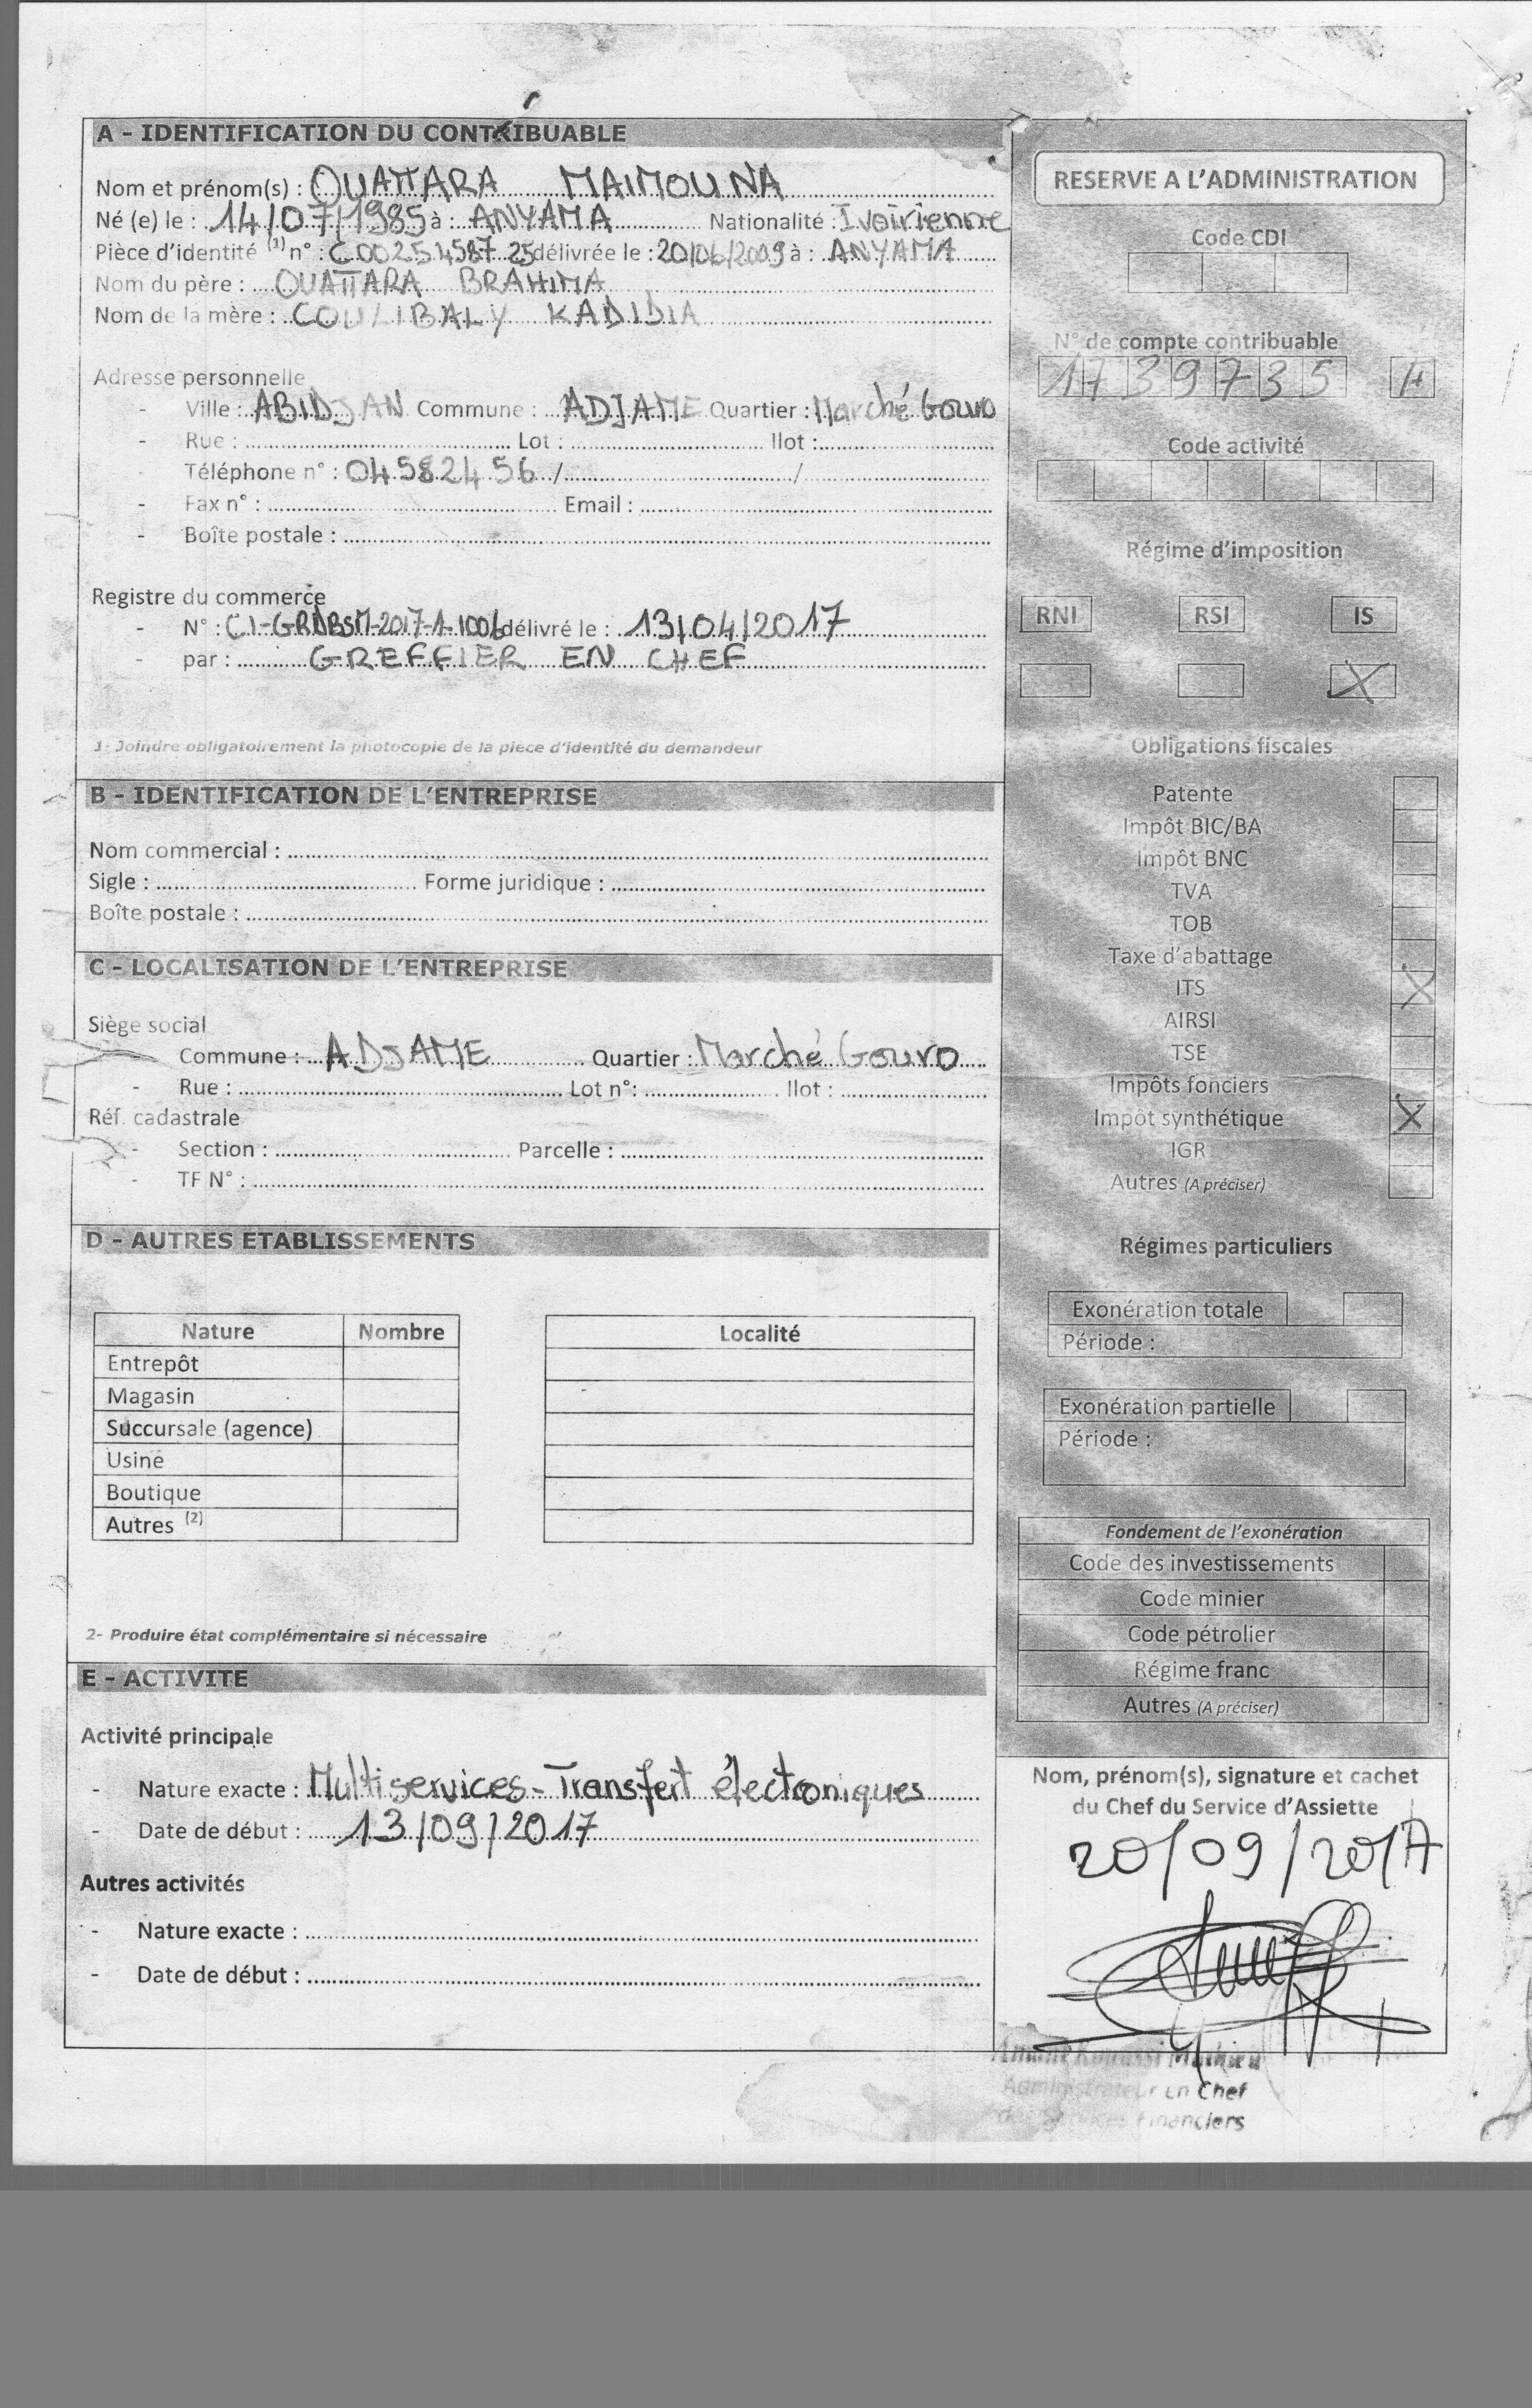 A - IDENTIFICATION DU CONTRIBUABLE
Nom et prénom(s) : OUATTARA MAIMOUNA
Né (e) le : 14/07/1985 à : ANYAMA Nationalité : Ivoirienne
Pièce d'identité (1) n° : C 00254587 25 délivrée le : 20/06/2009 à : ANYAMA
Nom du père : OUATTARA BRAHIMA
Nom de la mère : COULIBALY KADIDIA
Adresse personnelle
- Ville : ABIDJAN Commune : ADJAME Quartier : Marché Gouro
- Rue : Lot : Ilot :
- Téléphone n° : 04582456 / /
- Fax n° : Email :
- Boîte postale :
Registre du commerce
- N° : CI-GRDBSM-2017-A-1006 délivré le : 13/04/2017
- par : GREFFIER EN CHEF
1- Joindre obligatoirement la photocopie de la pièce d'identité du demandeur
B - IDENTIFICATION DE L'ENTREPRISE
Nom commercial :
Sigle : Forme juridique :
Boîte postale :
C - LOCALISATION DE L'ENTREPRISE
Siège social
Commune : ADJAME Quartier : Marché Gouro
- Rue : Lot n°: Ilot :
Réf. cadastrale
- Section : Parcelle :
- TF N° :
D - AUTRES ETABLISSEMENTS
Nature Nombre Localité
Entrepôt
Magasin
Succursale (agence)
Usine
Boutique
Autres (2)
2- Produire état complémentaire si nécessaire
E - ACTIVITE
Activité principale
- Nature exacte : Multiservices-Transfert électroniques
- Date de début : 13/09/2017
Autres activités
- Nature exacte :
- Date de début :
RESERVE A L'ADMINISTRATION
Code CDI
N° de compte contribuable
1739735 H
Code activité
Régime d'imposition
RNI RSI IS
X
Obligations fiscales
Patente
Impôt BIC/BA
Impôt BNC
TVA
TOB
Taxe d'abattage
ITS X
AIRSI
TSE
Impôts fonciers
Impôt synthétique X
IGR
Autres (A préciser)
Régimes particuliers
Exonération totale
Période :
Exonération partielle
Période :
Fondement de l'exonération
Code des investissements
Code minier
Code pétrolier
Régime franc
Autres (A préciser)
Nom, prénom(s), signature et cachet
du Chef du Service d'Assiette
20/09/2017
Kouassi Mathieu
Administrateur En Chef
des Services Financiers